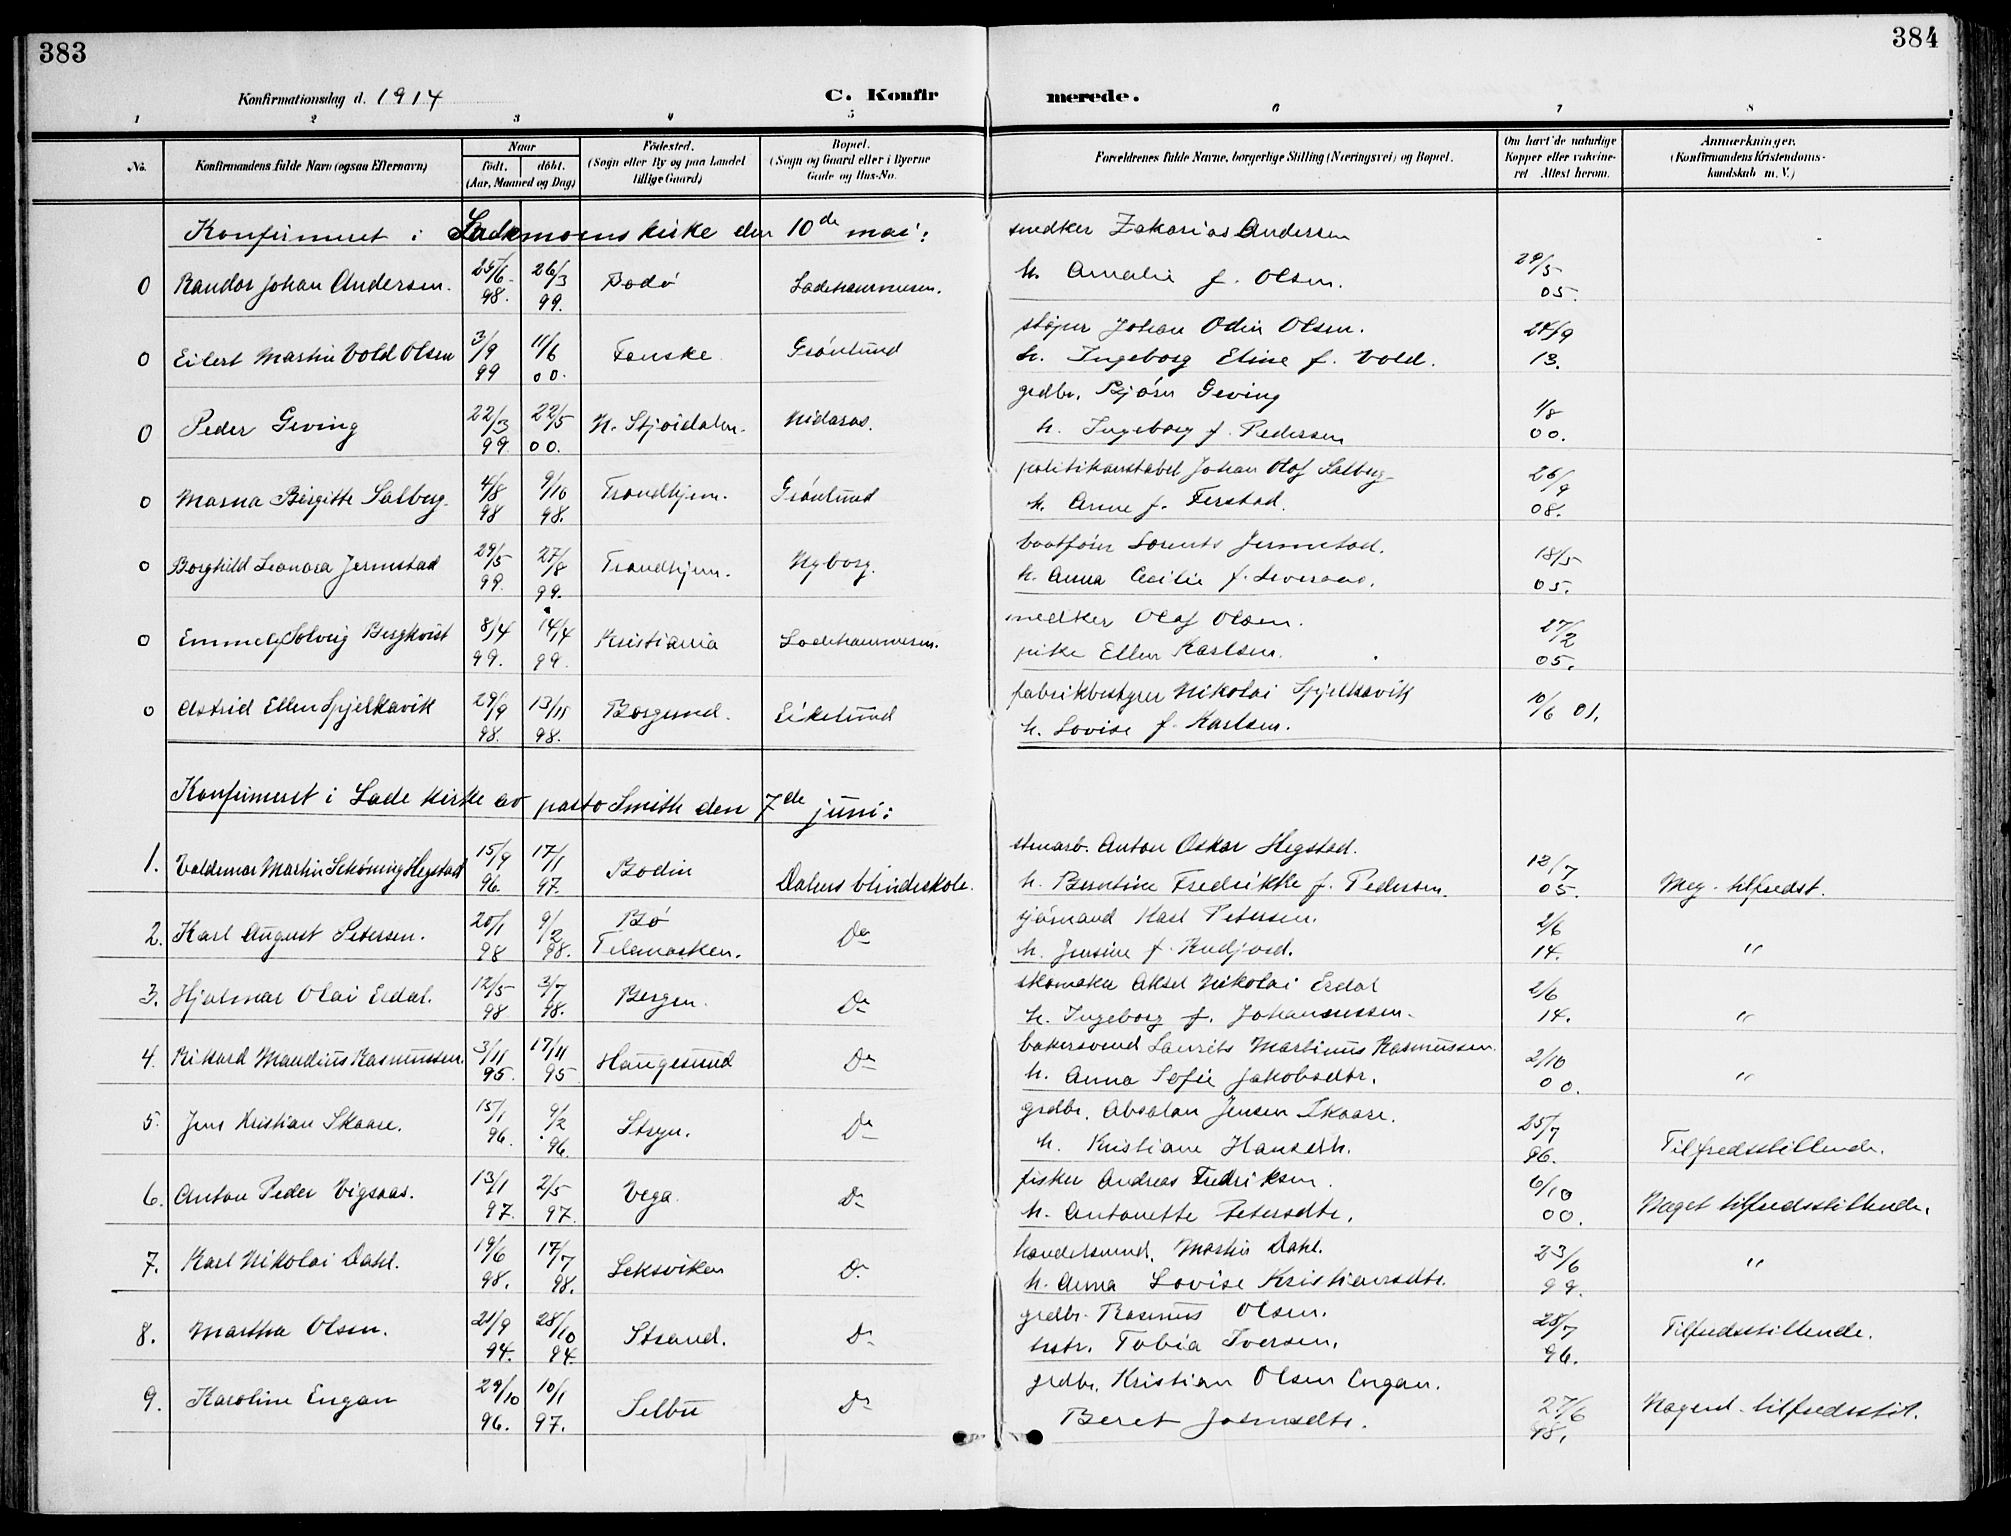 383
384
Konfirmationsdag d. 1914
C. Konfirmerede.
1 2 3 4 5 6 7 8
No.
Konfirmandens fulde Navn (ogsaa Efternavn)
Naar
født. døbt.
(Aar, Maaned og Dag)
Fødested.
(Sogn eller By og paa Landet
tillige Gaard)
Bopæl.
(Sogn og Gaard eller i Byerne
Gade og Hus-No.
Forældrenes fulde Navne, borgerlige Stilling (Næringsvei) og Bopæl.
Om havt de naturlige
Kopper eller vakcine-
ret Attest herom.
Anmærkninger.
(Konfirmandens Kristendoms-
kundskab m. V.)
Konfirmeret i Lademoens kirke den 10de mai:
snedker Zakarias Andersen
0 Randor Johan Andersen. 25/6 98. 26/3 99. Bodø Ladehammeren. h. Amalie f. Olsen. 29/5 05.
støper Johan Odin Olsen.
0 Eilert Martin Vold Olsen 3/9 99 11/6 00. Fauske Grønlund h. Ingeborg Eline f. Vold. 24/9 13.
grdbr. Bjørn Geving
0 Peder Geving 22/3 99 22/5 00. N. Stjørdalen. Nidaros. h. Ingeborg f. Pedersen 1/8 00.
politikonstabel Johan Olaf Salberg
0 Marna Birgitte Salberg. 4/8 98 9/10 98. Trondhjem. Grønlund h. Anne f. Ferstad. 26/9 08.
baatfører Lorents Jermstad.
0 Borghild Leonora Jermstad 29/5 99. 27/8 99. Trondhjem. Nyborg. h. Anna Cecilie f. 18/5 05.
snedker Olaf Olsen.
0 Emmely Solveig Bergkvist 8/4 99. 14/4 99. Kristiania Ladehammeren. pike Ellen Karlsen. 27/2 05.
fabrikbestyrer Nikolai Spjelkavik
0 Astrid Ellen Spjelkavik 29/9 98. 13/11 98. Borgund. Eikelund h. Lovise f. Karlsen. 10/6 01.
Konfirmeret i Lade kirke av pastor Smith den 7de juni:
stenarb. Anton Oskar Hegstad.
1. Valdemar Martin Schöning Hegstad 15/9 96. 17/1 97. Bodin Dalens blindeskole. h. Berntine Fredrikke f. Pedersen. 12/7 05. Meg. tilfredst.
sjømand Karl Petersen.
2. Karl August Petersen. 20/1 98 9/2 98. Bø Telemarken. Do h. Jensine f. 2/6 14. "
skomaker Aksel Nikolai Erdal
3. Hjalmar Olai Erdal. 12/5 98 3/7 98. Bergen. Do h. Ingeborg f. Johannessen. 2/6 14. "
bakersvend Laurits Martinus Rasmussen.
4. Rikard Mandius Rasmussen. 3/11 95. 17/11 95 Haugesund Do h. Anna Sofie Jakobsdtr. 2/10 00. "
grdbr. Absalon Jensen Skaare.
5. Jens Kristian Skaare. 15/1 96. 9/2 96 Stryn. Do h. Kristiane Hansdtr. 25/7 96. Tilfredsstillende.
fisker Andreas Fredriksen.
6. Anton Peder Vigsaas. 13/1 97. 2/5 97. Vega. Do h. Antonette Petersdtr. 6/10 00. Noget tilfredsstillende.
handelsmand. Martin Dahl.
7. Karl Nikolai Dahl. 19/6 98. 17/7 98. Leksviken Do h. Anna Lovise Kristiansdtr. 23/6 99. "
grdbr. Rasmus Olsen.
8. Martha Olsen. 21/9 94. 28/10 94. Strand. Do hstr. Tobia Iversen. 28/7 96. Tilfredsstillende.
grdbr. Kristian Olsen Engan.
9. Karoline Engan 29/10 96. 10/1 97. Selbu Do Beret 27/6 98. Nogenl. tilfredsstil.